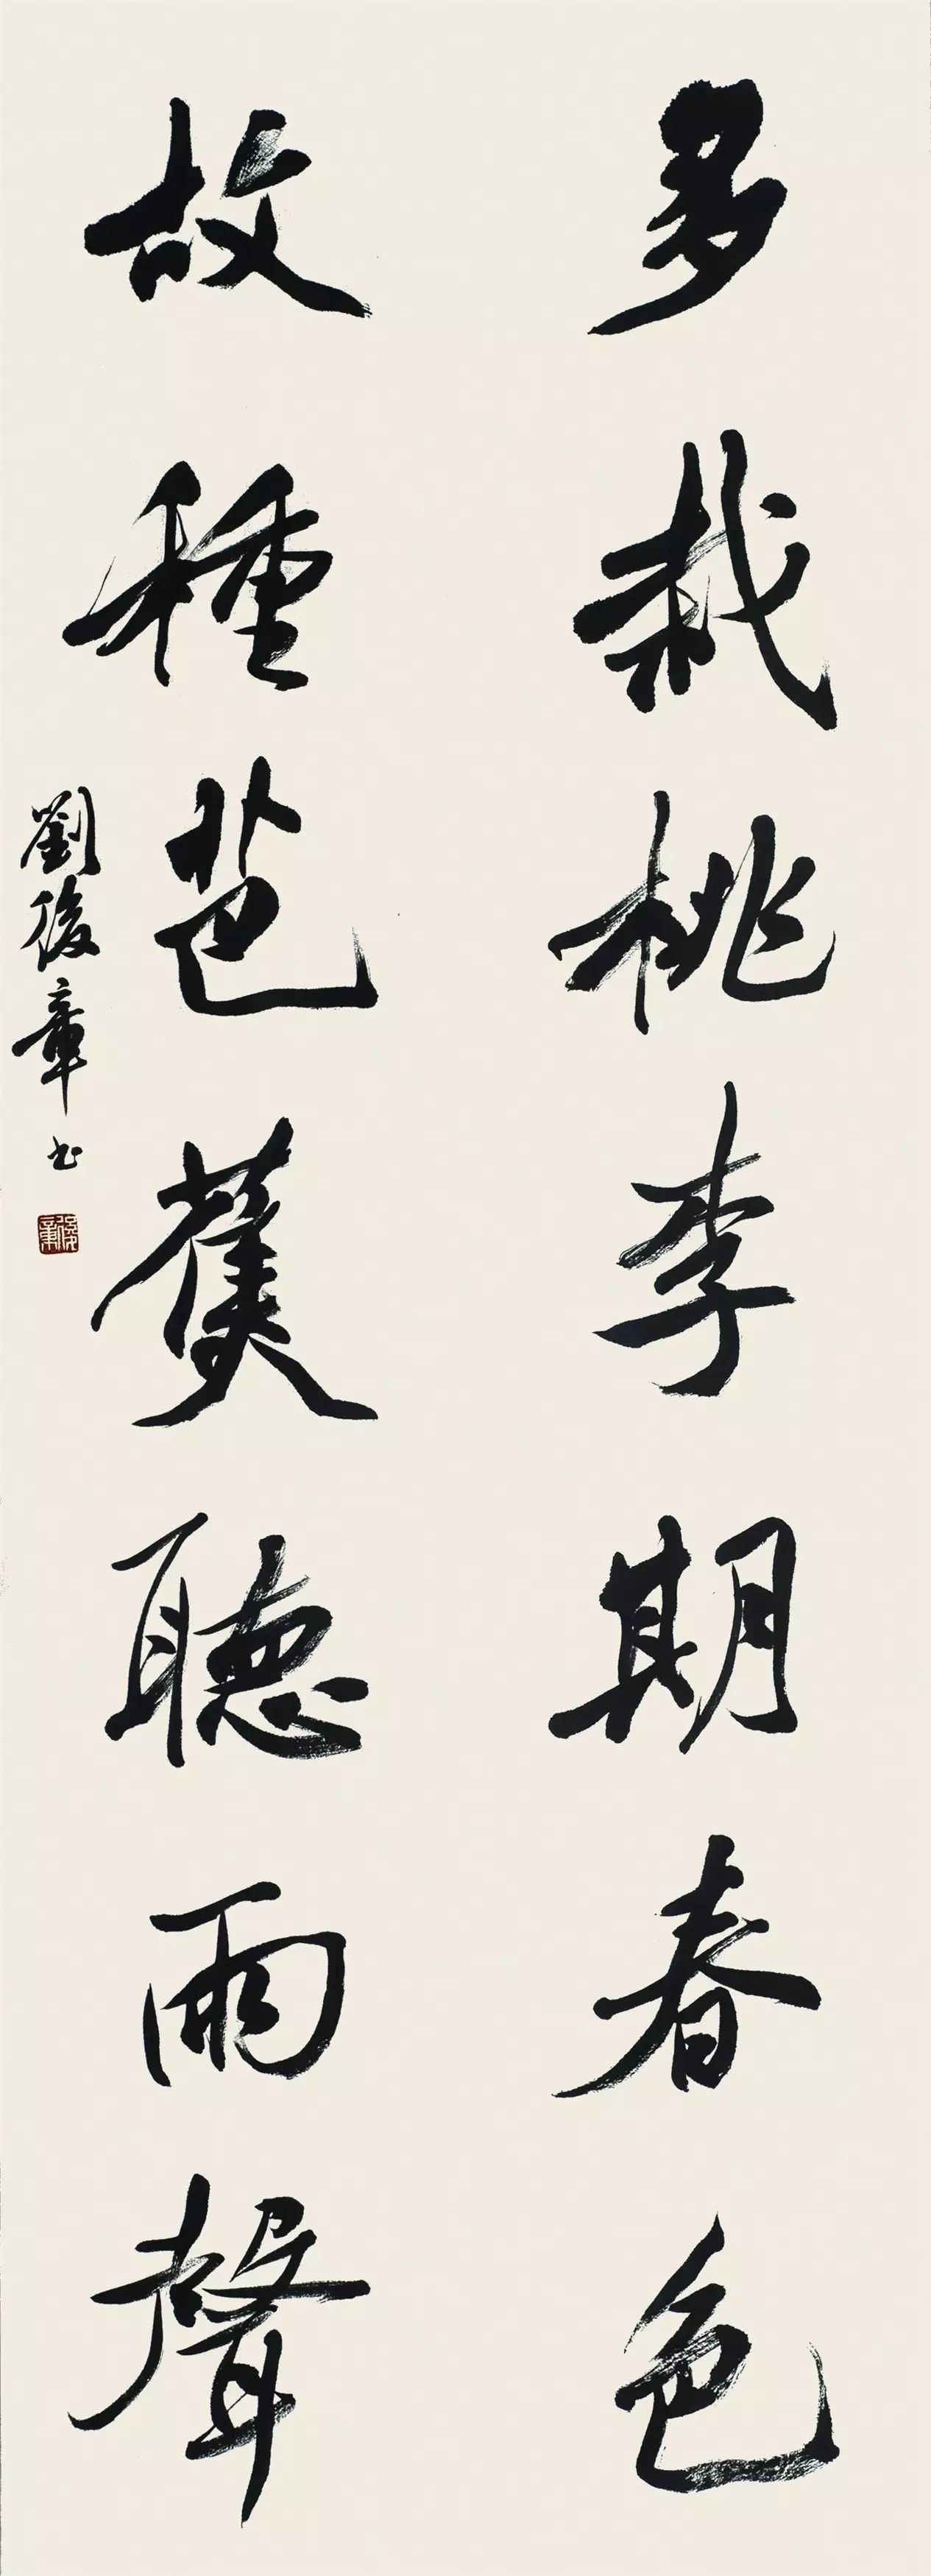 多栽桃李期春色
故種芭蕉聽雨聲
劉俊章書
俊章